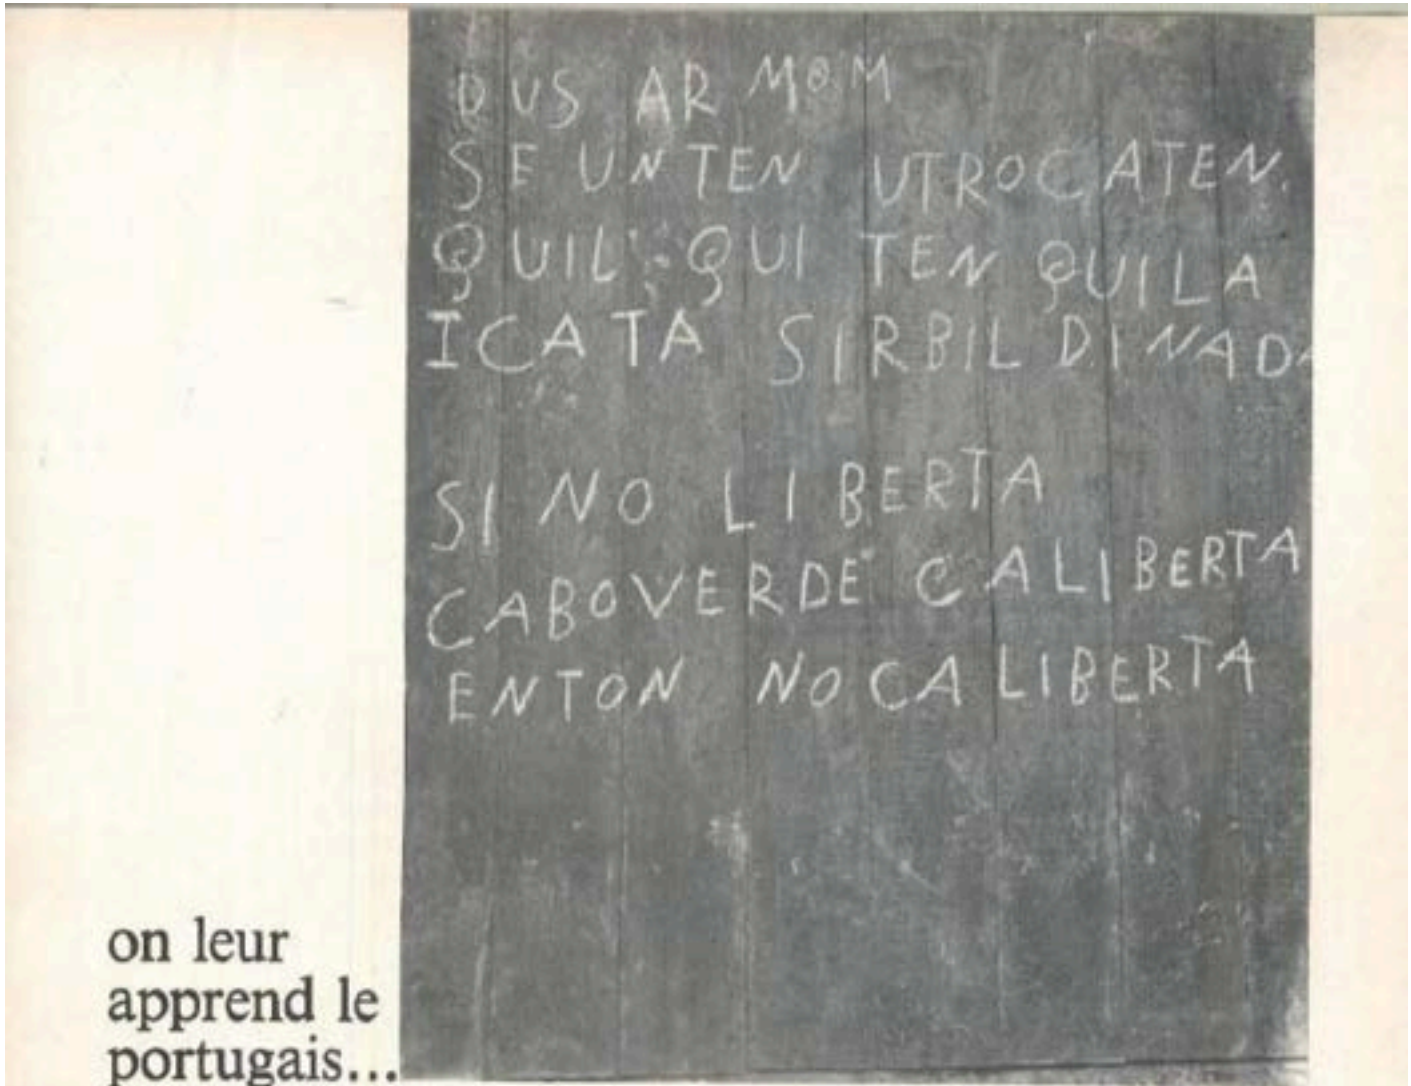 DUS ARMOM
SE UN TEN UTRO CATEN.
QUIL QUI TEN QUILA
ICATA SIRBIL DI NADA
SI NO LIBERTA
CABOVERDE CA LIBERTA
ENTON NO CA LIBERTA
on leur
apprend le
portugais...